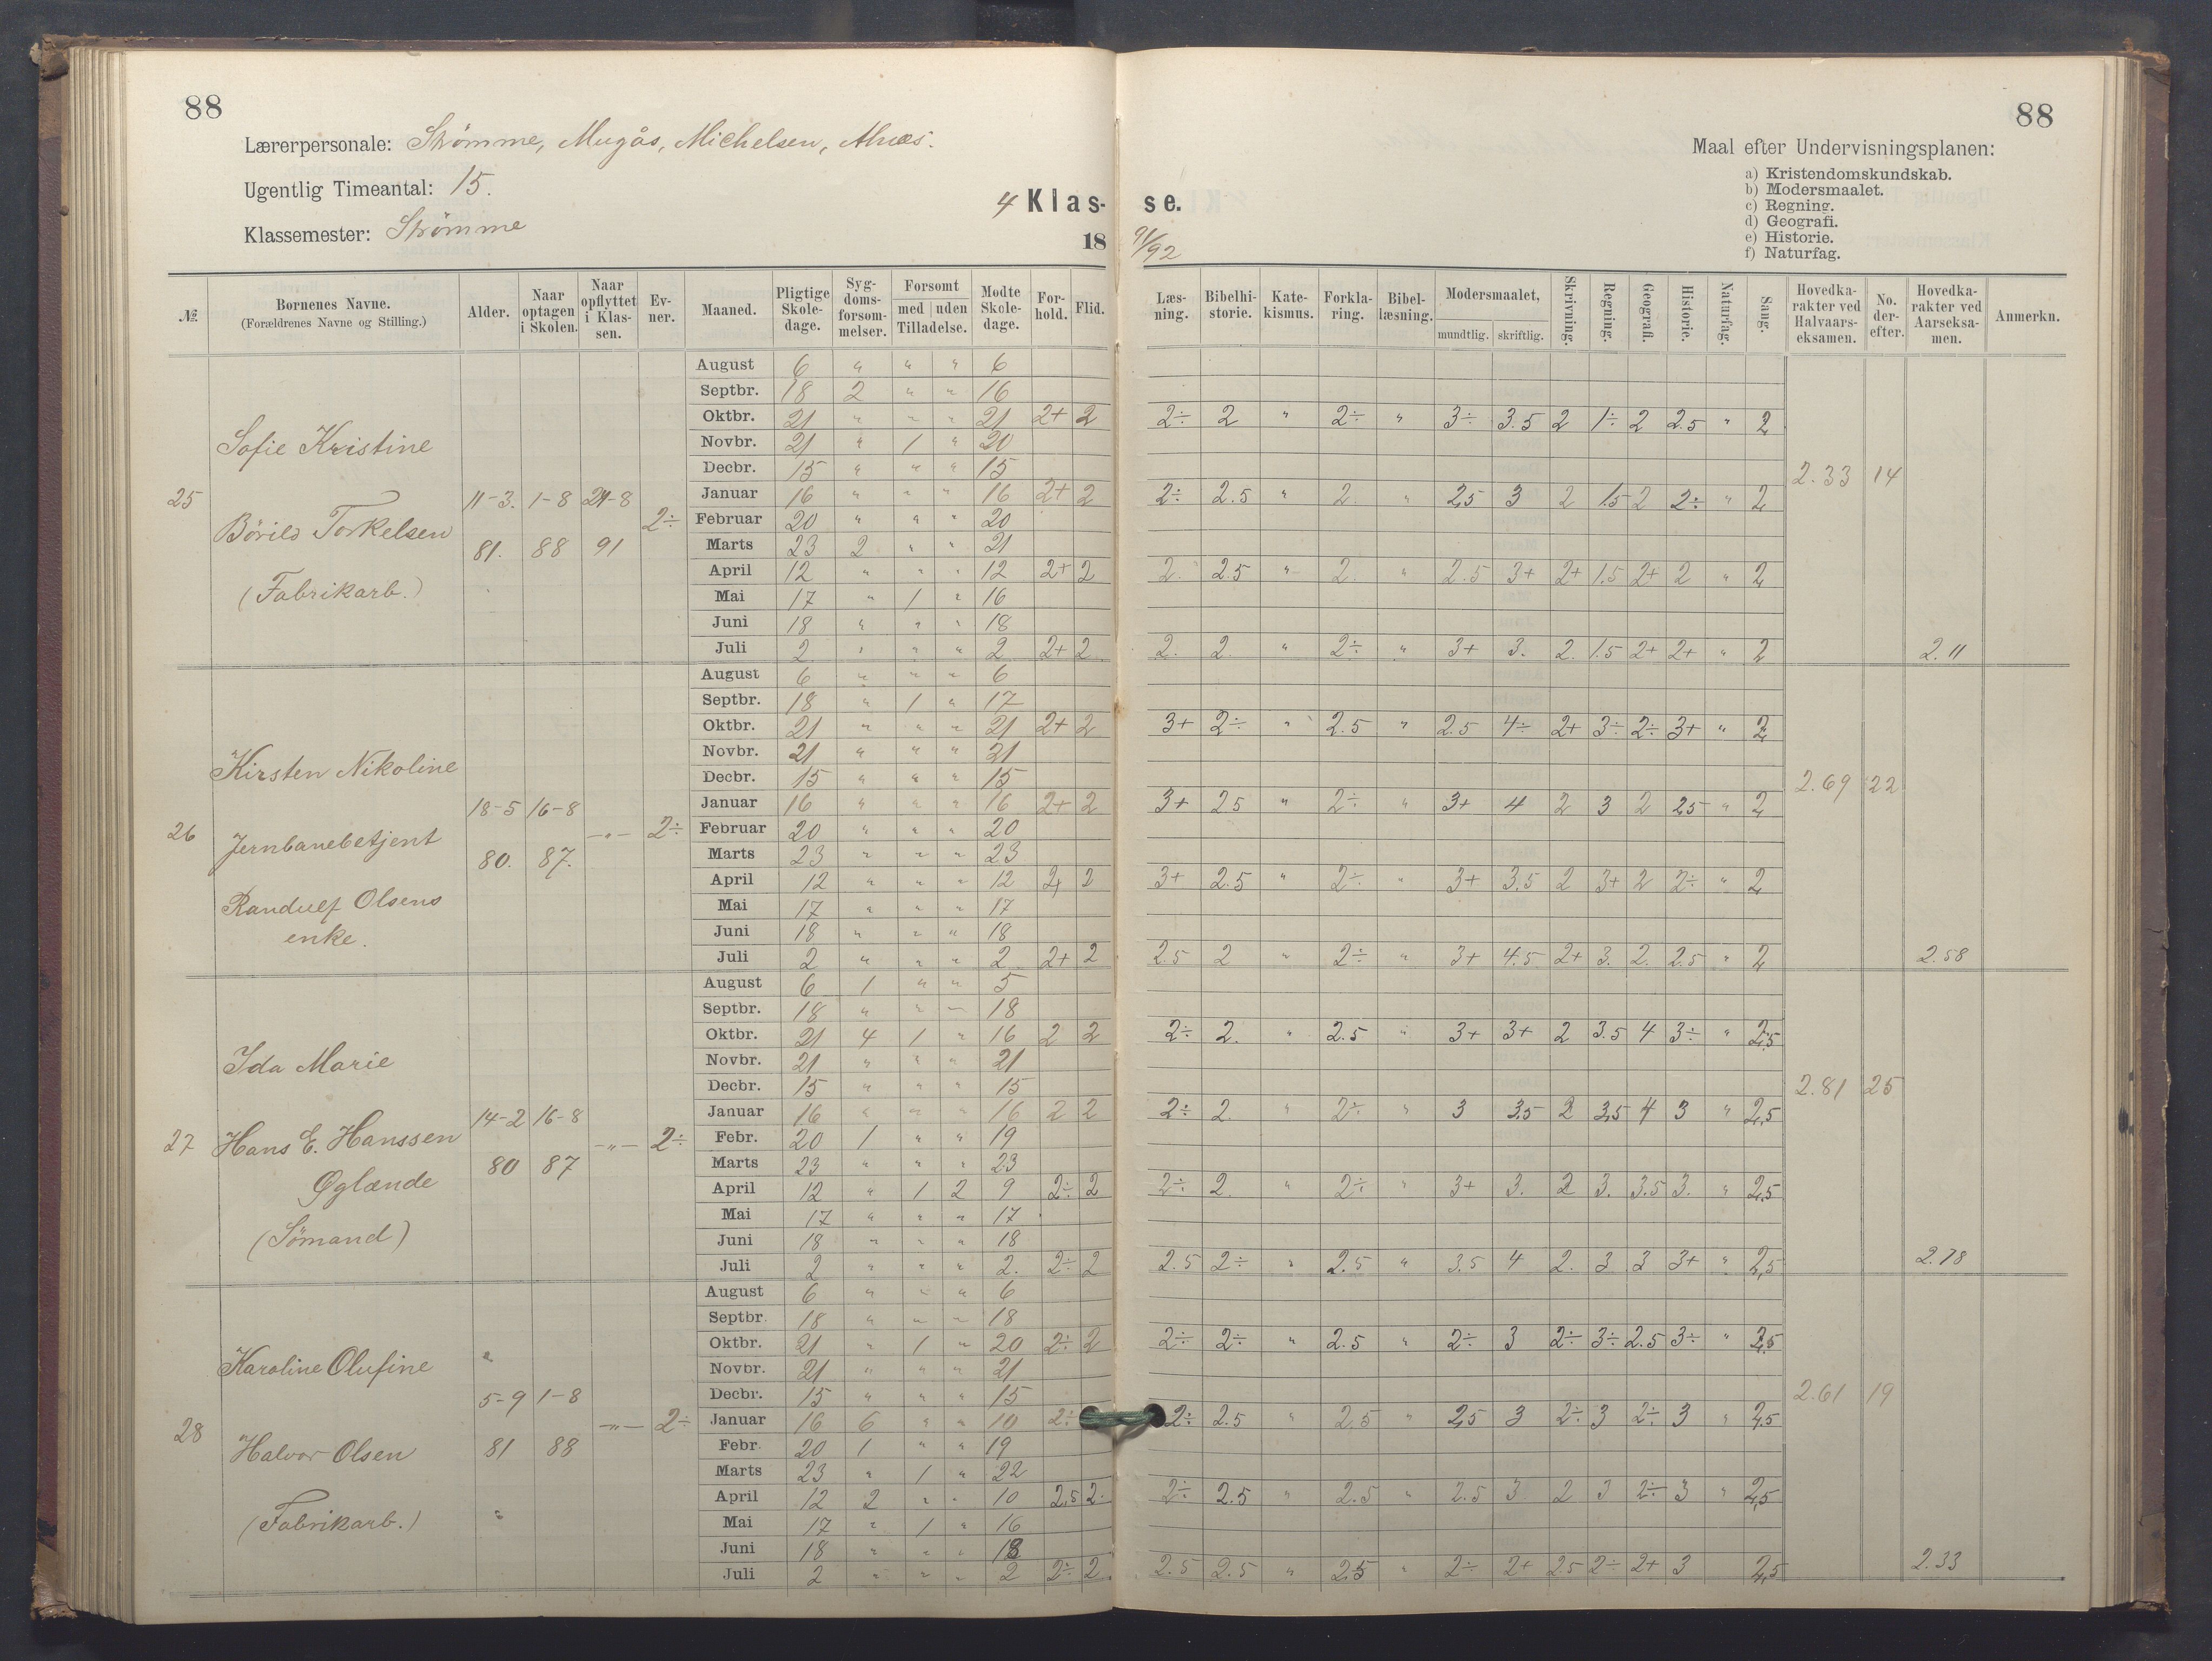 88
88
Lærerpersonale: Strömme, Mugås, Michelsen, Alnæs.
Ugentlig Timeantal: 15.
Klassemester: Strömme
4 Klasse.
18 91/92
Maal efter Undervisningsplanen:
a) Kristendomskundskab.
b) Modersmaalet.
c) Regning.
d) Geografi.
e) Historie.
f) Naturfag.
№. | Børnenes Navne. (Forældrenes Navne og Stilling.) | Alder. | Naar optagen i Skolen. | Naar opflyttet i Klassen. | Evner. | Maaned. | Pligtige Skoledage. | Sygdomsforsømmelser. | Forsømt med Tilladelse. | uden Tilladelse. | Mødte Skoledage. | Forhold. | Flid. | Læsning. | Bibelhistorie. | Katekismus. | Forklaring. | Bibellæsning. | Modersmaalet, mundtlig. | skriftlig. | Skrivning. | Regning. | Geografi. | Historie. | Naturfag. | Sang. | Hovedkarakter ved Halvaarseksamen. | No. derefter. | Hovedkarakter ved Aarseksamen. | Anmerkn.
25 Sofie Kristine
Börild Torkelsen
(Fabrikarb.)
11-3. 81. | 1-8 88 | 24-8 91 | 2÷
August 6 " " " 6
Septbr. 18 2 " " 16
Oktbr. 21 " " " 21 2+ 2 | 2÷ 2 " 2÷ " 3÷ 3.5 2 1÷ 2 2.5 " 2
Novbr. 21 " 1 " 20
Decbr. 15 " " " 15 | 2.33 14
Januar 16 " " " 16 2+ 2 | 2÷ 2.5 " 2. " 2.5 3 2 1.5 2 2÷ " 2
Februar 20 " " " 20
Marts 23 2 " " 21
April 12 " " " 12 2+ 2 | 2. 2.5 " 2. " 2.5 3+ 2+ 1.5 2+ 2 " 2
Mai 17 " 1 " 16
Juni 18 " " " 18
Juli 2 " " " 2 2+ 2 | 2. 2. " 2÷ " 3+ 3. 2. 1.5 2+ 2+ " 2 | 2.11
26 Kirsten Nikoline
Jernbanebetjent
Randulf Olsens
enke.
18-5 80. | 16-8 87. | -"- | 2÷
August 6 " " " 6
Septbr. 18 " 1 " 17
Oktbr. 21 " " " 21 2+ 2 | 3+ 2÷ " 2.5 " 2.5 4÷ 2+ 3÷ 2÷ 3+ " 2
Novbr. 21 " " " 21
Decbr. 15 " " " 15 | 2.69 22
Januar 16 " " " 16 2+ 2 | 3+ 2.5 " 2÷ " 3+ 4 2 3 2 2.5 " 2
Februar 20 " " " 20
Marts 23 " " " 23
April 12 " " " 12 2+ 2 | 3+ 2.5 " 2÷ " 3+ 3.5 2 3+ 2 2÷ " 2
Mai 17 " " " 17
Juni 18 " " " 18
Juli 2 " " " 2 2+ 2 | 2.5 2 " 2÷ " 3+ 4.5 2+ 3. 2. 2.5 " 2 | 2.58
27 Ida Marie
Hans E. Hanssen
Øglænde
(Sömand)
14-2 80 | 16-8 87 | -"- | 2÷
August 6 1 " " 5
Septbr. 18 " " " 18
Oktbr. 21 4 1 " 16 2 2 | 2÷ 2. " 2.5 " 3+ 3+ 2 3.5 4 3÷ " 2.5
Novbr. 21 " " " 21
Decbr. 15 " " " 15 | 2.81 25
Januar 16 " " " 16 2 2 | 2÷ 2. " 2÷ " 3 3.5 2 3.5 4 3 " 2.5
Febr. 20 1 " " 19
Marts 23 " " " 23
April 12 " 1 2 9 2÷ 2 | 2÷ 2. " 2÷ " 3+ 3. 2 3. 3.5 3. " 2.5
Mai 17 " " " 17
Juni 18 " " " 18
Juli 2 " " " 2. 2÷ 2 | 2.5 2÷ " 2.5 " 3.5 4 2. 3 3 3+ " 2.5 | 2.78
28 Karoline Olufine
Halvor Olsen
(Fabrikarb.)
5-9 81 | 1-8 88 | -"- | 2÷
August 6 " " " 6
Septbr. 18 " " " 18
Oktbr. 21 " 1 " 20 2÷ 2 | 2÷ 2÷ " 2.5 " 2÷ 3 2÷ 3÷ 2.5 3÷ " 2.5
Novbr. 21 " " " 21
Decbr. 15 " " " 15 | 2.61 19
Januar 16 6 " " 10 2÷ | 2÷ 2.5 " 2.5 " 2.5 3 2÷ 3 2÷ 3 " 2.5
Febr. 20 1 " " 19
Marts 23 " 1 " 22
April 12 2 " " 10 2,5 2. | 2÷ 2.5 " 2.5 " 2.5 3 2 3 2÷ 3 " 2.5
Mai 17 " 1 " 16
Juni 18 " " " 18
Juli 2 " " " 2 2÷ 2 | 2.5 2.5 " 2.5 " 2÷ 2+ 2.5 2÷ 2+ 3 2,5 | 2.33